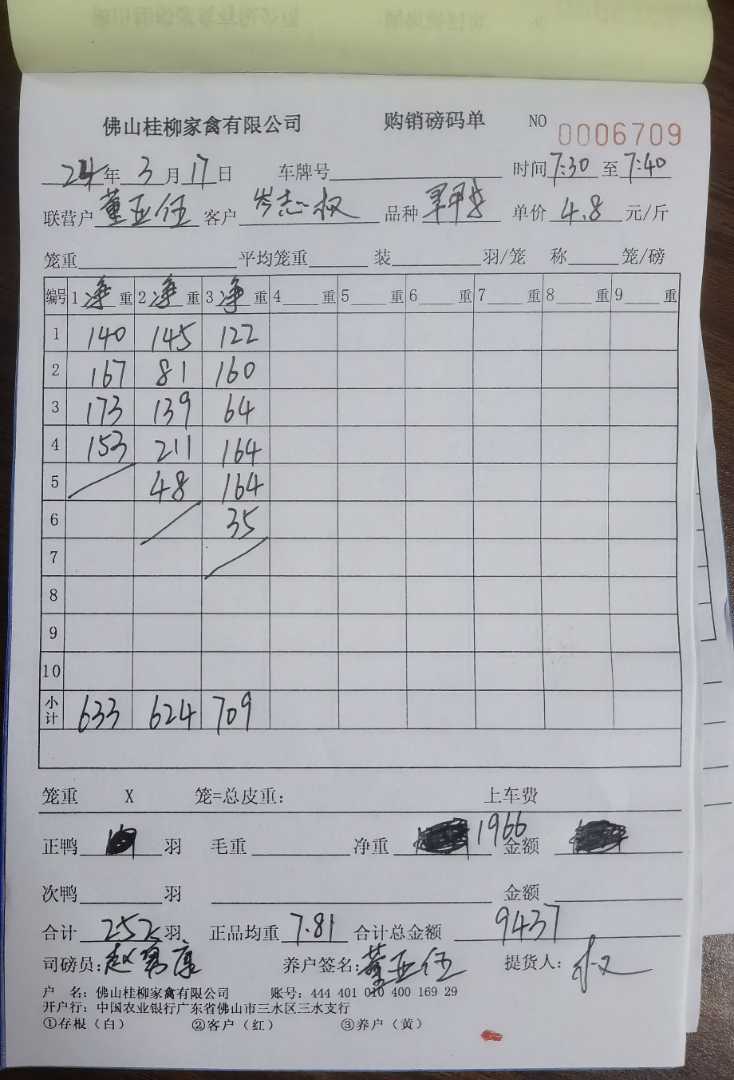 佛山桂柳家禽有限公司 购销磅码单 NO 0006709
24年3月17日 车牌号 时间7:30至7:40
联营户董亚伍 客户岑志权 品种 单价4.8元/斤
笼重 平均笼重 装 羽/笼 称 笼/磅
编号 1净重 2净重 3净重 4重 5重 6重 7重 8重 9重
1 140 145 122
2 167 81 160
3 173 139 64
4 153 211 164
5 48 164
6 35
7
8
9
10
小计 633 624 709
笼重 X 笼=总皮重: 上车费
正鸭 羽 毛重 净重 1966 金额
次鸭 羽 金额
合计252羽 正品均重7.81 合计总金额 9437
司磅员:赵 康 养户签名:董亚伍 提货人:权
户 名: 佛山桂柳家禽有限公司 账号: 444 401 010 400 169 29
开户行: 中国农业银行广东省佛山市三水区三水支行
①存根（白） ②客户（红） ③养户（黄）